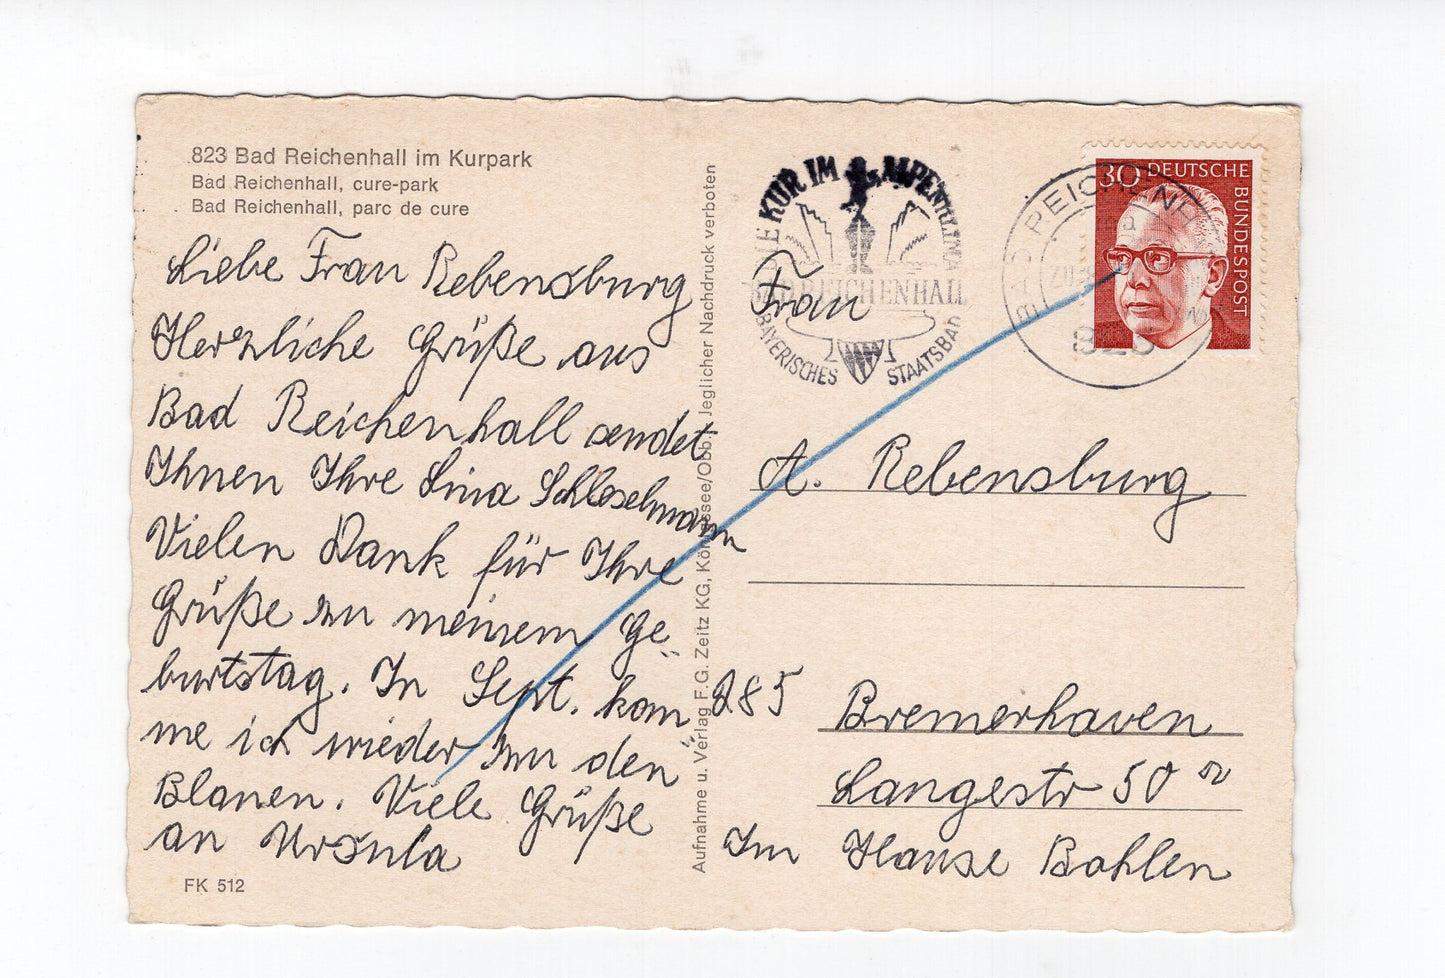 823 Bad Reichenhall im Kurpark
Bad Reichenhall, cure-park
Bad Reichenhall, parc de cure
Liebe Frau Rebensburg
Herzliche Grüße aus
Bad Reichenhall sendet
Ihnen Ihre Lina
Vielen Dank für Ihre
Grüße zu meinem Ge-
burtstag. In Sept. kom-
me ich wieder zu den
Blauen. Viele Grüße
an Ursula
FK 512
Aufnahme u. Verlag F.G. Zeitz KG, Königssee/Obb. Jeglicher Nachdruck verboten
KUR IM ALPENKLIMA
BAD REICHENHALL
BAYERISCHES STAATSBAD
BAD REICHENHALL
20.
823
30 DEUTSCHE
BUNDESPOST
Frau
A. Rebensburg
285 Bremerhaven
Langestr 50
Im Hause Bohlen